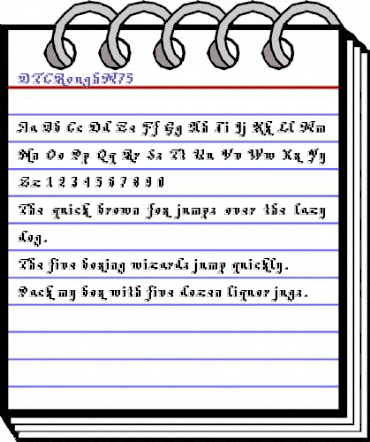 DTCRoughM75
Aa Bb Cc Dd Ee Ff Gg Hh Ii Jj Kk Ll Mm
Nn Oo Pp Qq Rr Ss Tt Uu Vv Ww Xx Yy
Zz 1 2 3 4 5 6 7 8 9 0
The quick brown fox jumps over the lazy
dog.
The five boxing wizards jump quickly.
Pack my box with five dozen liquor jugs.